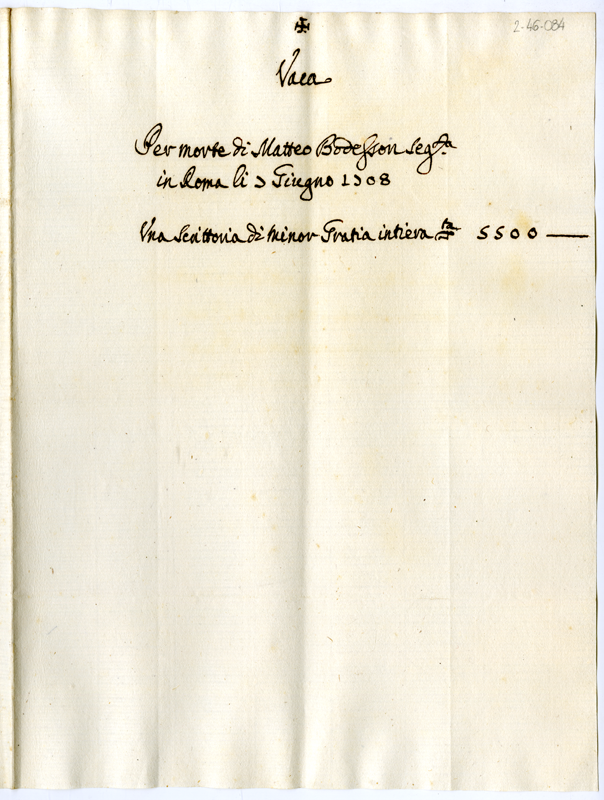 2-46-084
✠
Vaca
Per morte di Matteo Bodesson seg.ta
in Roma li 3 Giugno 1708
Una scrittoria di minor Gratia intiera 5500 —